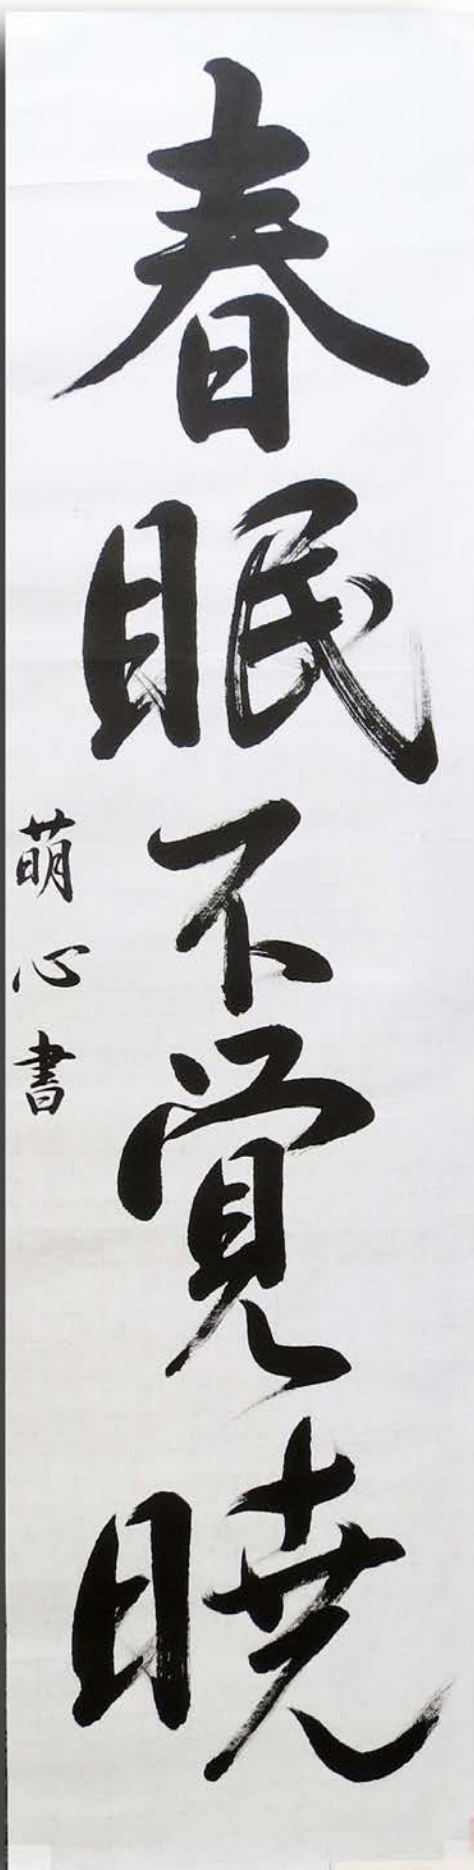 春眠不覚暁
萌心書